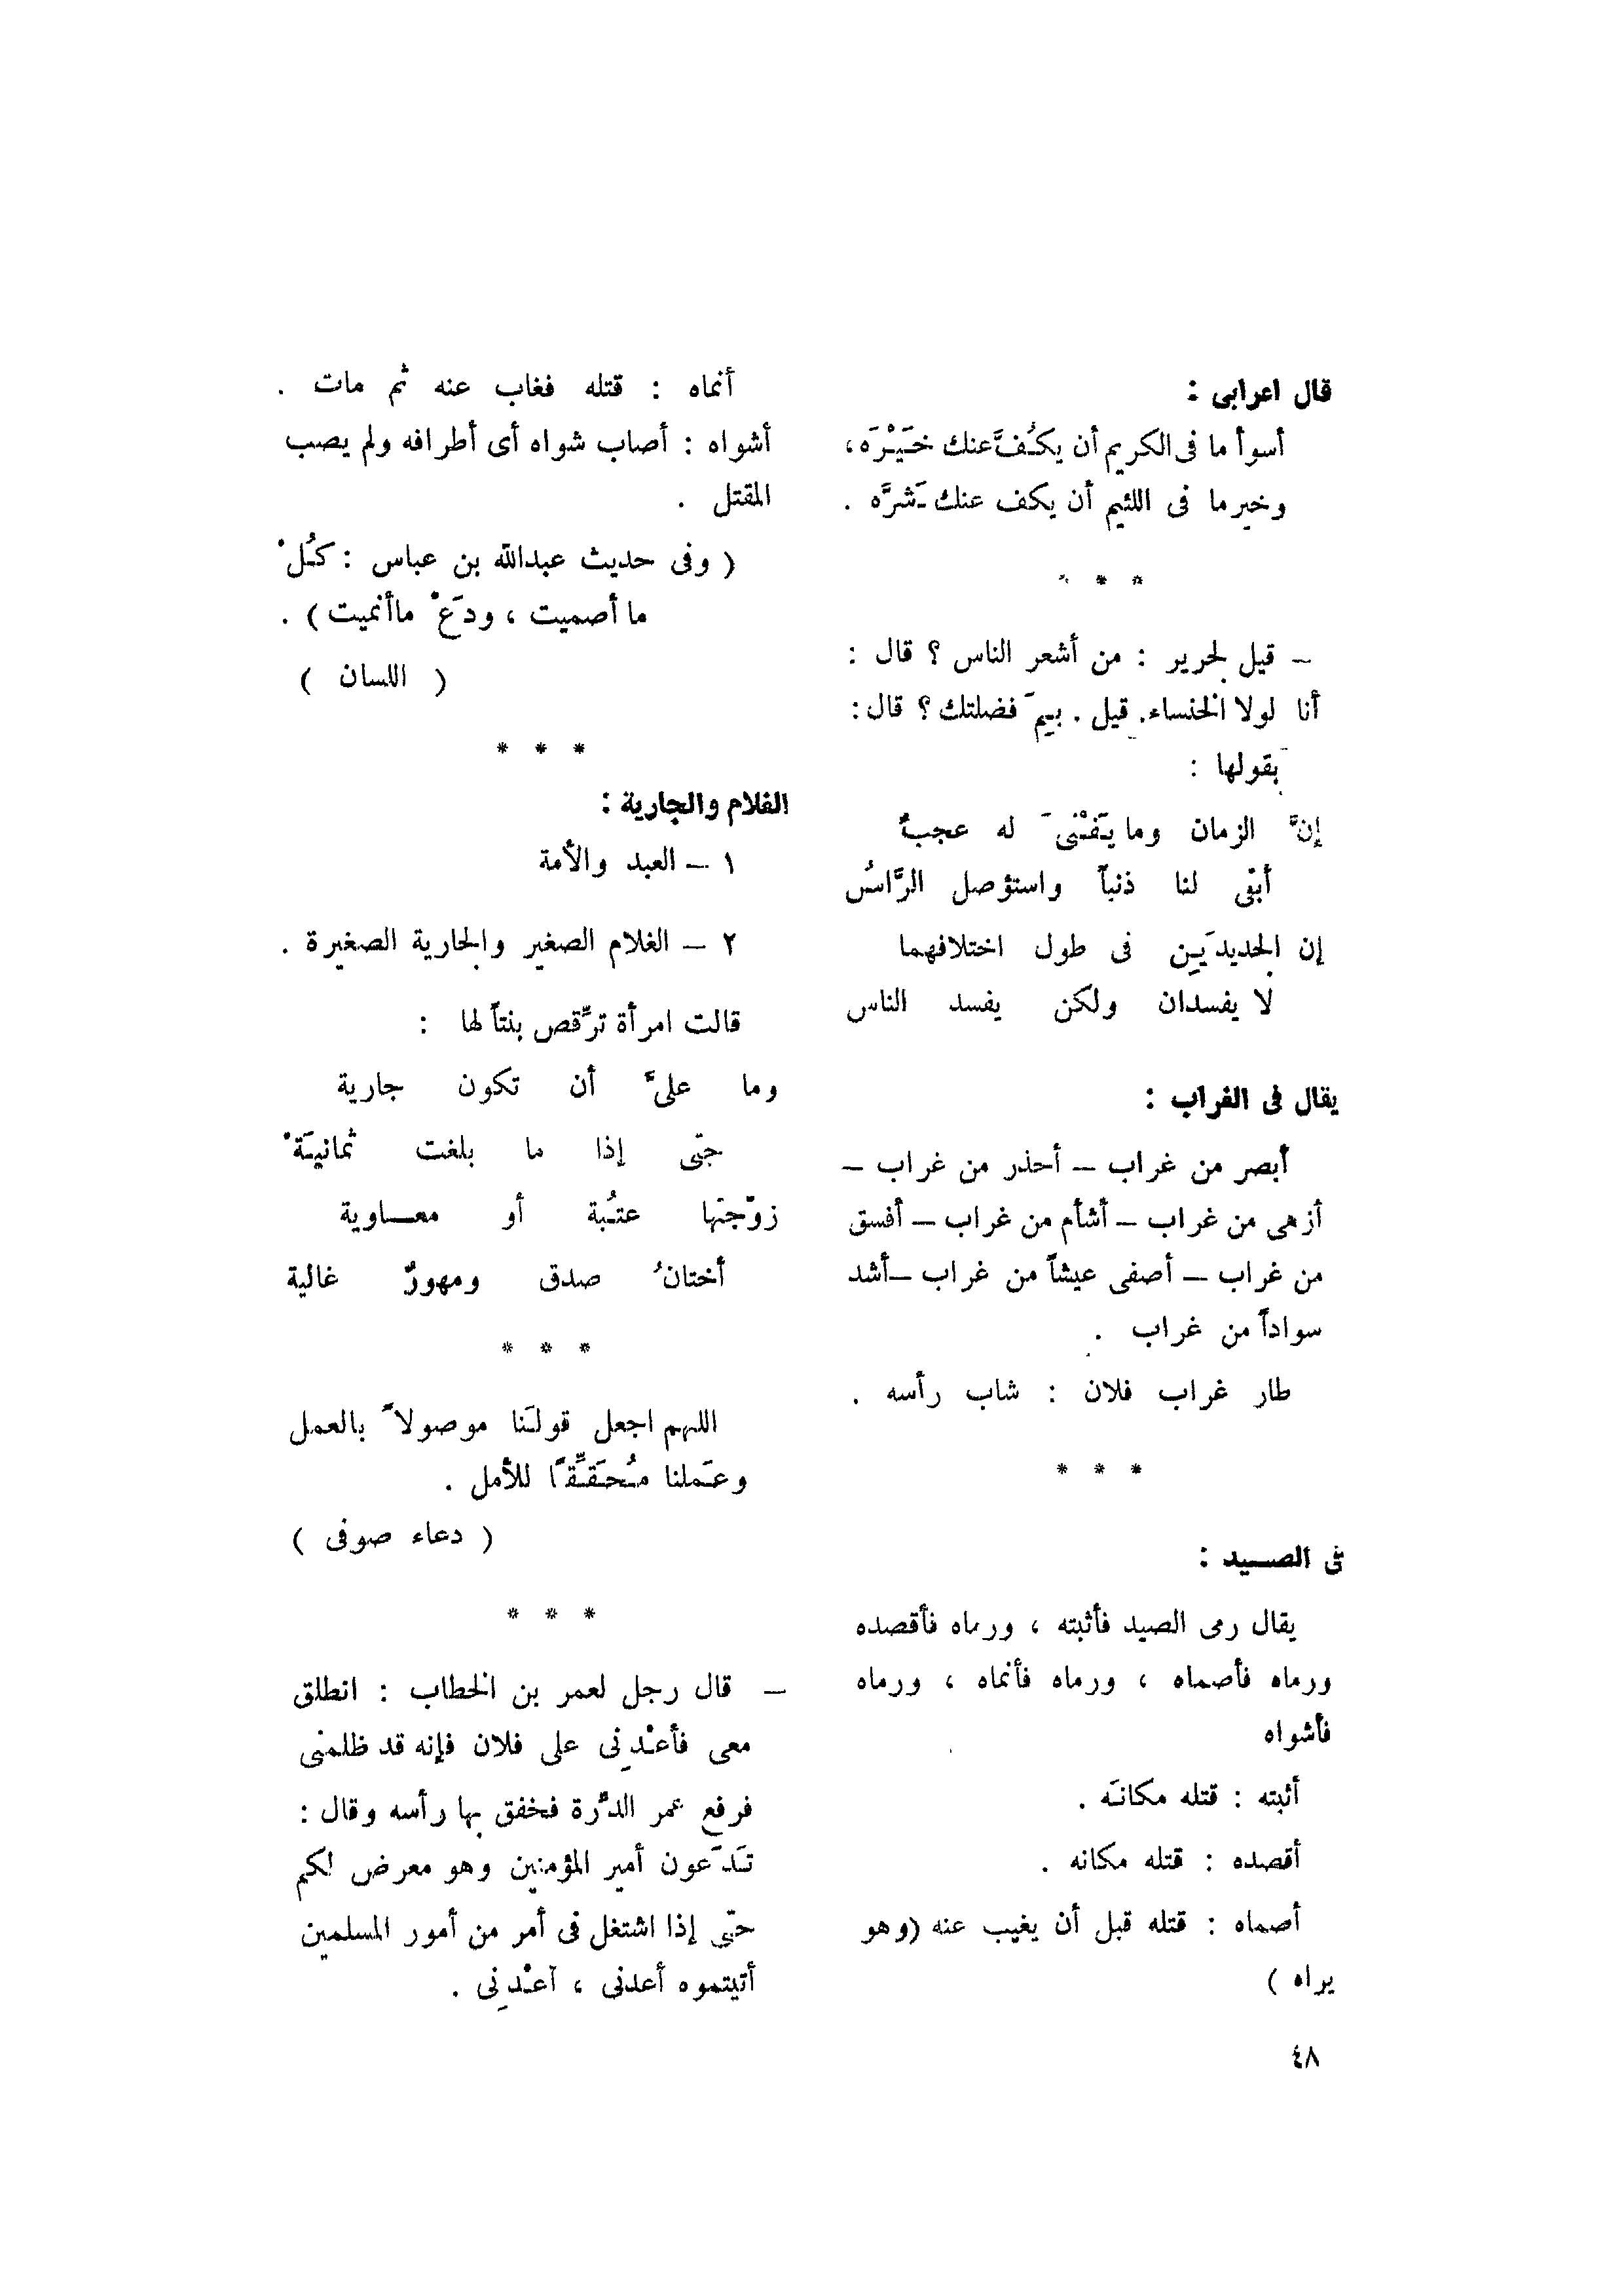 قال اعرابى :
أسوأ ما فى الكريم أن يكُفَّ عنك خَيْرَه ،
وخير ما فى اللئيم أن يكف عنك شَرَّه .
* * *
– قيل لجرير : من أشعر الناس ؟ قال :
أنا لولا الخنساء . قيل . بِمَ فضلتك ؟ قال :
بقولها :
إنَّ الزمان وما يَفْنىَ له عجبٌ
أبقى لنا ذنباً واستؤصل الرَّاسُ
إن الجديدَين فى طول اختلافهما
لا يفسدان ولكن يفسد الناس
يقال فى الغراب :
أبصر من غراب – أحذر من غراب –
أزهى من غراب – أشأم من غراب – أفسق
من غراب – أصفى عيشاً من غراب – أشد
سواداً من غراب .
طار غراب فلان : شاب رأسه .
* * *
فى الصيد :
يقال رمى الصيد فأثبته ، ورماه فأقصده
ورماه فأصماه ، ورماه فأنماه ، ورماه
فأشواه
أثبته : قتله مكانَه .
أقصده : قتله مكانه .
أصماه : قتله قبل أن يغيب عنه (وهو
يراه )
أنماه : قتله فغاب عنه ثم مات .
أشواه : أصاب شواه أى أطرافه ولم يصب
المقتل .
( وفى حديث عبدالله بن عباس : كُلْ
ما أصميت ، ودَعْ ماأنميت ) .
( اللسان )
* * *
الغلام والجارية :
١ – العبد والأمة
٢ – الغلام الصغير والجارية الصغيرة .
قالت امرأة ترقِّص بنتاً لها :
وما علىَّ أن تكون جارية
حتى إذا ما بلغت ثمانيَةْ
زوّجتها عتُبة أو معاوية
أختانُ صدق ومهورٌ غالية
* * *
اللهم اجعل قولَنا موصولاً بالعمل
وعَملنا مُحَقِّقًا للأمل .
( دعاء صوفى )
* * *
– قال رجل لعمر بن الخطاب : انطلق
معى فأعْدِنى على فلان فإنه قد ظلمنى
فرفع عمر الدِّرة فخفق بها رأسه وقال :
تَدَعون أمير المؤمنين وهو معرض لكم
حتى إذا اشتغل فى أمر من أمور المسلمين
أتيتموه أعدنى ، أعْدِنى .
٤٨